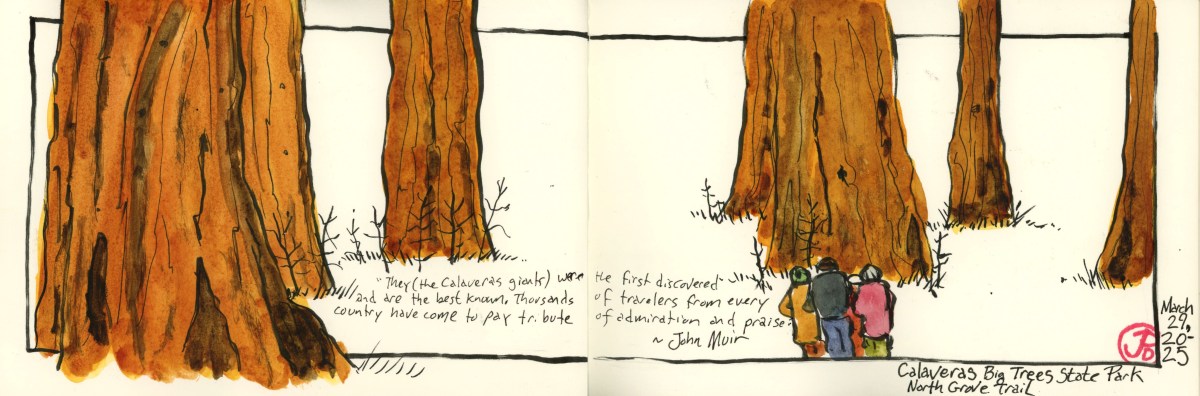 "They (the Calaveras giants) were the first discovered
and are the best known. Thousands of travelers from every
country have come to pay tribute of admiration and praise."
~ John Muir
March
29,
20-
25
JD
Calaveras Big Trees State Park
North Grove Trail